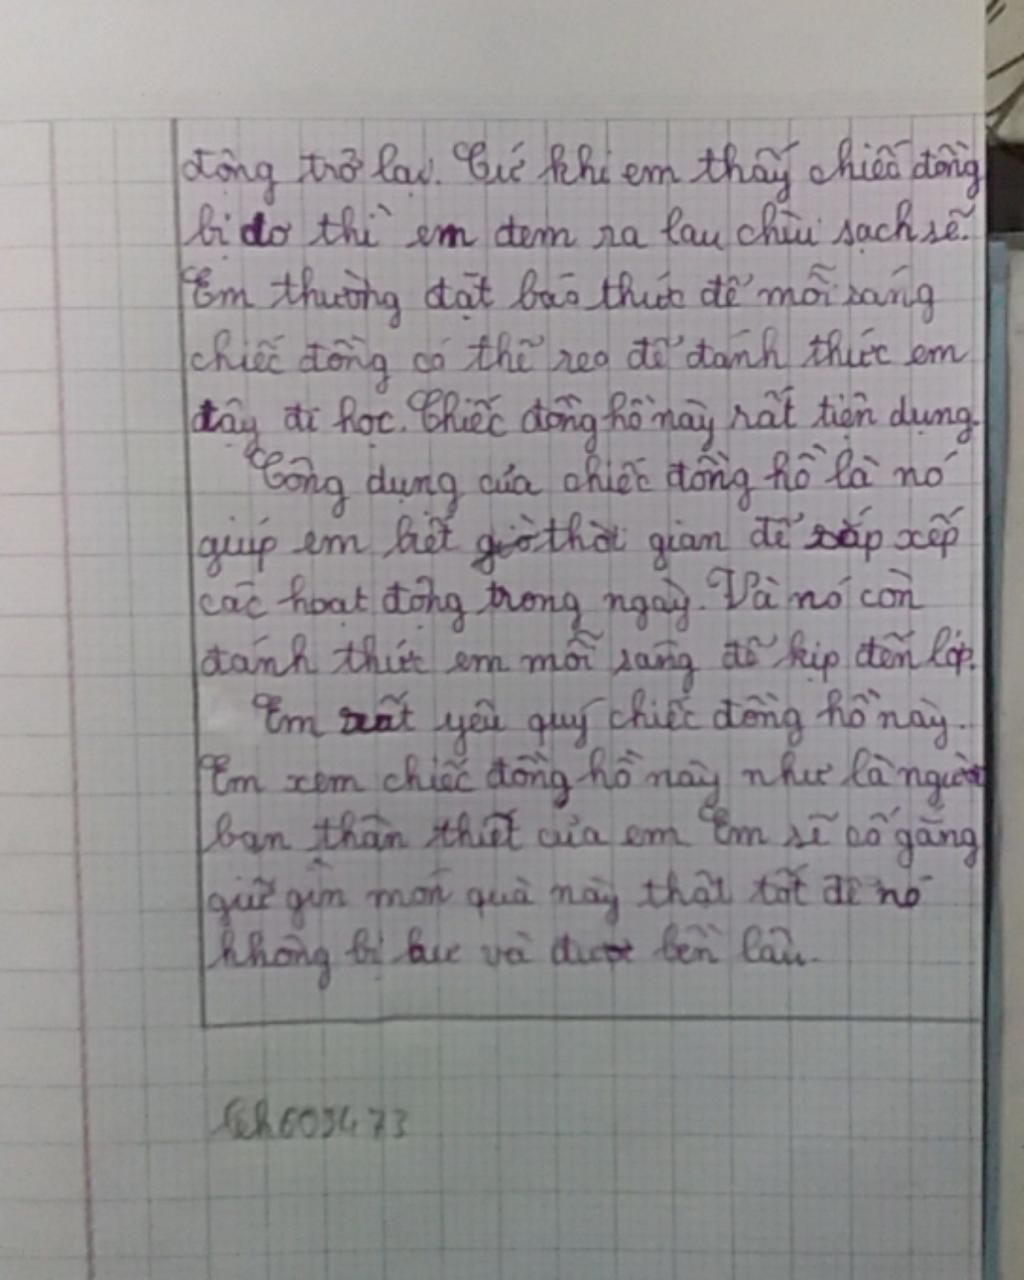 động trở lại. Cứ khi em thấy chiếc đồng
bị dơ thì em đem ra lau chìu sạch sẽ.
Em thường đặt báo thức để mỗi sáng
chiếc đồng có thể reo để đánh thức em
dậy đi học. Chiếc đồng hồ này rất tiện dụng.
Công dụng của chiếc đồng hồ là nó
giúp em biết giờ thời gian để sắp xếp
các hoạt động trong ngày. Và nó còn
đánh thức em mỗi sáng để kịp đến lớp.
Em rất yêu quý chiếc đồng hồ này.
Em xem chiếc đồng hồ này như là người
bạn thân thiết của em Em sẽ cố gắng
giữ gìn món quà này thật tốt để nó
không bị hư và được bền lâu.
609473